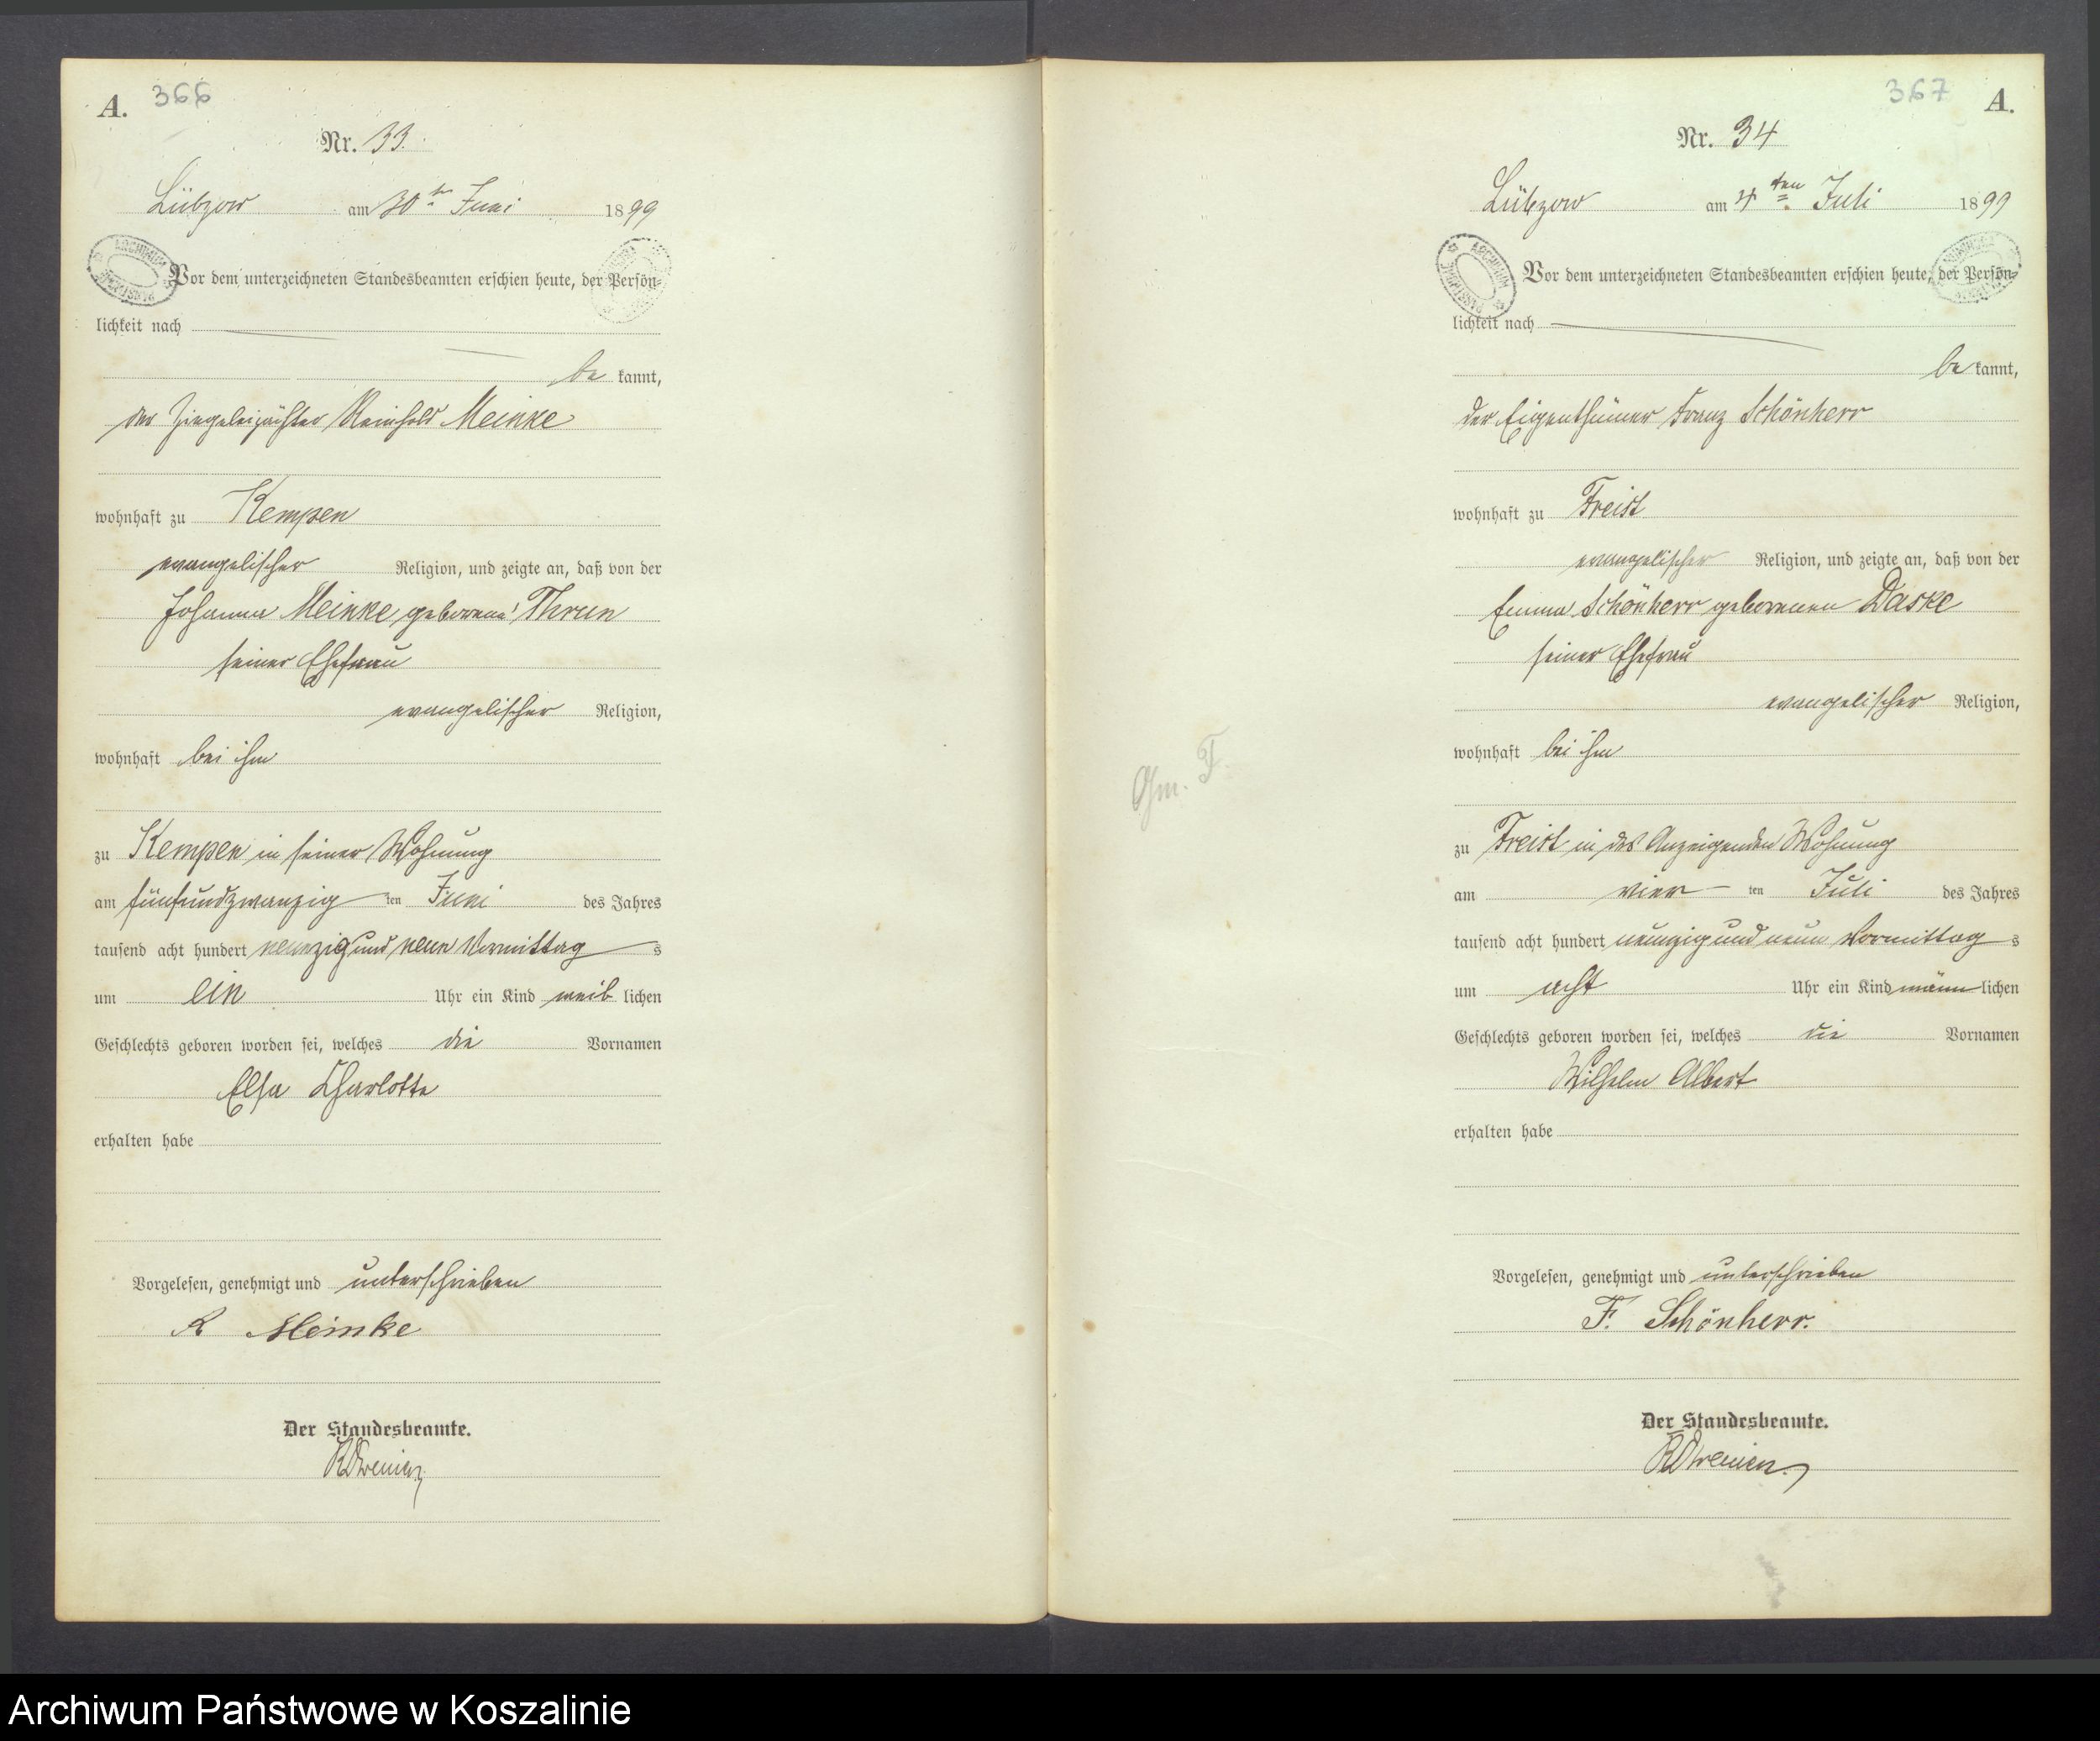 A. 366
Nr. 33.
Lübzow am 30ten Juni 1899
Vor dem unterzeichneten Standesbeamten erschien heute, der Persön-
lichkeit nach
be kannt,
der Ziegeleipächter Reinhold Meinke
wohnhaft zu Kempen
evangelischer Religion, und zeigte an, daß von der
Johanna Meinke geborene Thrun
seiner Ehefrau
evangelischer Religion,
wohnhaft bei ihm
zu Kempen in seiner Wohnung
am fünfundzwanzig ten Juni des Jahres
tausend acht hundert neunzig und neun Vormittag s
um ein Uhr ein Kind weib lichen
Geschlechts geboren worden sei, welches die Vornamen
Elsa Charlotte
erhalten habe
Vorgelesen, genehmigt und unterschrieben
R Meinke
Der Standesbeamte.
367 A.
Nr. 34
Lübzow am 4ten Juli 1899
Vor dem unterzeichneten Standesbeamten erschien heute, der Persön-
lichkeit nach
be kannt,
der Eigenthümer Franz Schönherr
wohnhaft zu Freist
evangelischer Religion, und zeigte an, daß von der
Emma Schönherr geborenen Daske
seiner Ehefrau
evangelischer Religion,
wohnhaft bei ihm
zu Freist in des Anzeigenden Wohnung
am vier ten Juli des Jahres
tausend acht hundert neunzig und neun Vormittag s
um acht Uhr ein Kind männ lichen
Geschlechts geboren worden sei, welches die Vornamen
Wilhelm Albert
erhalten habe
Vorgelesen, genehmigt und unterschrieben
F. Schönherr.
Der Standesbeamte.
Archiwum Państwowe w Koszalinie